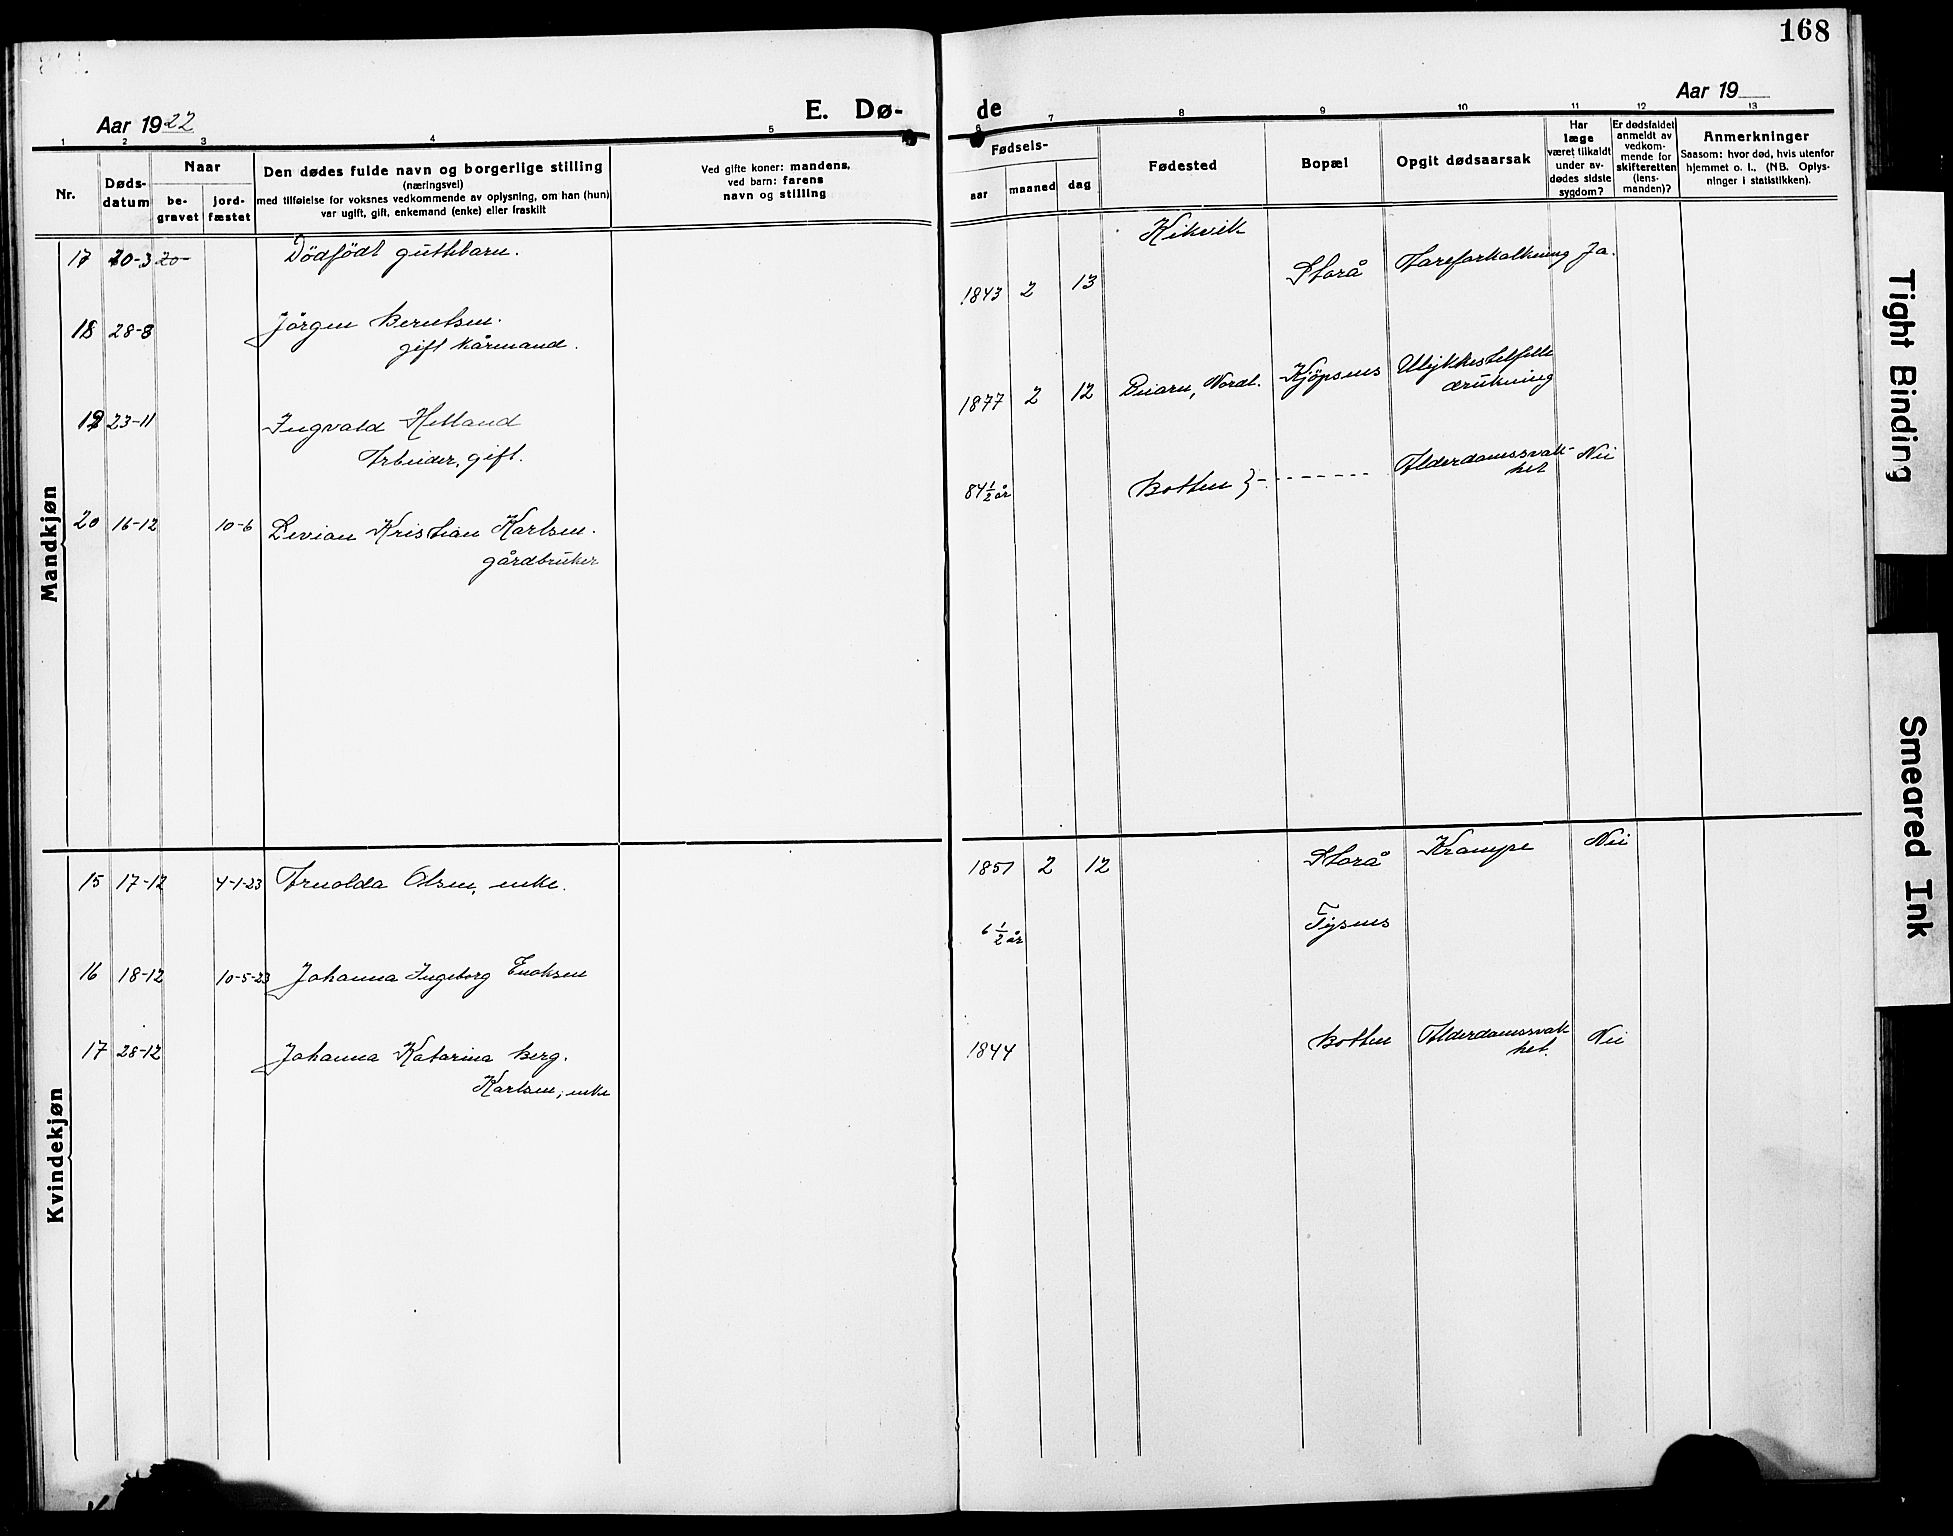 168
Aar 1922
E. Dø-
de
Aar 19
1 2 3 4 5
6 7 8 9 10 11 12 13
Nr.
Døds-
datum
Naar
be-
gravet
jord-
fæstet
Den dødes fulde navn og borgerlige stilling
(næringsvei)
med tilføielse for voksnes vedkommende av oplysning, om han (hun)
var ugift, gift, enkemand (enke) eller fraskilt
Ved gifte koner: mandens,
ved barn: farens
navn og stilling
Fødsels-
aar
maaned
dag
Fødested
Bopæl
Opgit dødsaarsak
Har
læge
været tilkaldt
under av-
dødes sidste
sygdom?
Er dødsfaldet
anmeldt av
vedkom-
mende for
skifteretten
(lens-
manden)?
Anmerkninger
Saasom: hvor død, hvis utenfor
hjemmet o. l., (NB. Oplys-
ninger i statistikken).
Mandkjøn
17 20-3 20- Dödfödt guttebarn. Kikvik
18 28-8 Jörgen Berntsen. 1843 2 13 Storå Aareforkalkning Ja.
gift kårmand.
19 23-11 Ingvald Helland 1877 2 12 Beiarn, Nordl. Kjöpsnes Ulykkestilfelle
Arbeider, gift. drukning
20 16-12 10-6 Levian Kristian Karlsen. 84 1/2 år Botten }- - - - - - - Alderdomssvak-
gårdbruker het Nei
Kvindekjøn
15 17-12 4-1-23 Arnolda Olsen, enke. 1851 2 12 Storå Krampe Nei
16 18-12 10-5-23 Johanna Ingeborg Enoksen 6 1/2 år Tysnes
17 28-12 Johanna Katarina Berg. 1844 Botten Alderdomssvak Nei
Karlsen, enke het.
Tight Binding
Smeared Ink